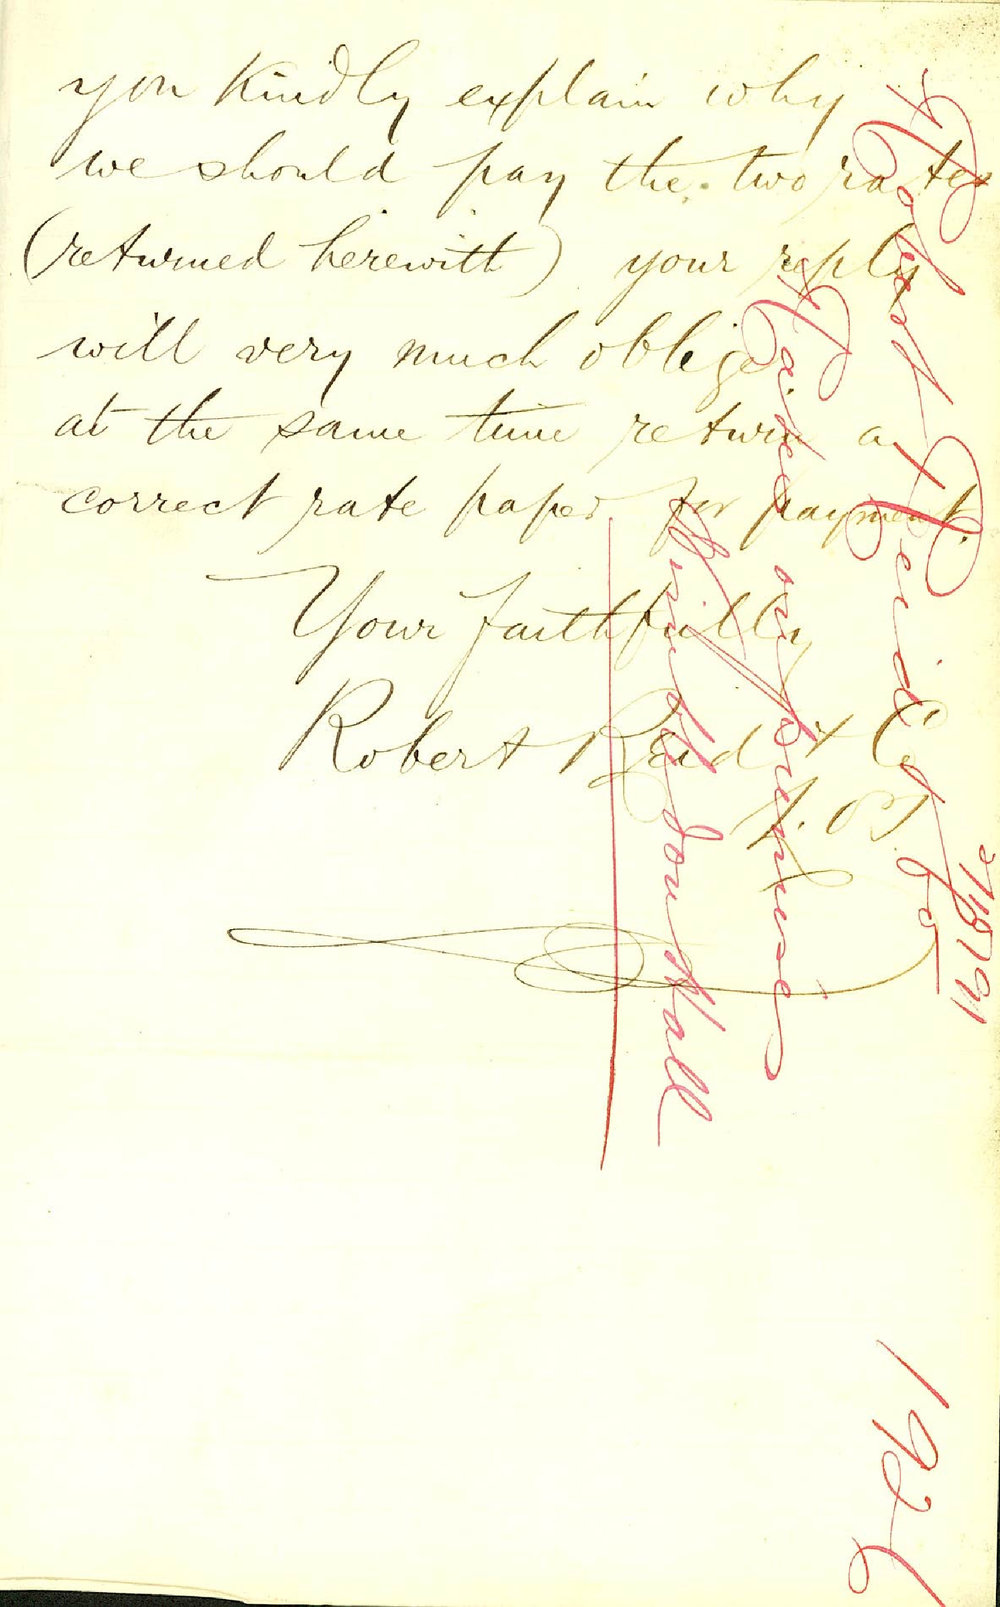 you kindly explain why
we should pay the two rates
(returned herewith) your reply
will very much oblige.
at the same time return a
correct rate paper for payment.
Your faithfully
Robert Reid & Co
Robert Reid & Co
Rates on premises
behind Town Hall
1926